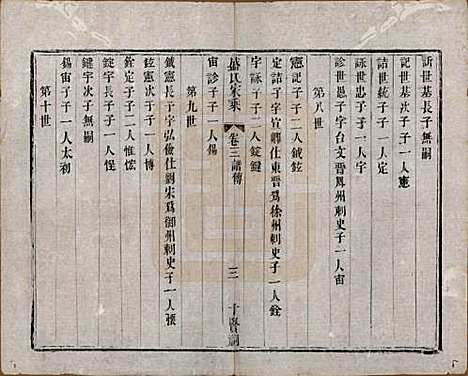 訢世基長子無嗣
記世基次子子一人憲
詰世統子子一人定
詠世忠子子一人宇
診世愚子字台文晉鳳州刺史子一人宙
第八世
憲記子子二人鉞鉉
定詰子字宣卿仕東晉爲徐州刺史子一人銓
宇詠子子二人錠鍵
宙診子子一人錫
氏家乘
卷三譜傳
三
十賢祠
第九世
鉞憲長子字弘儉仕劉宋爲御州刺史子一人懷
鉉憲次子子一人愽
銓定子子二人惟恡
錠宇長子子一人惺
鍵宇次子無嗣
錫宙子子一人太初
第十世